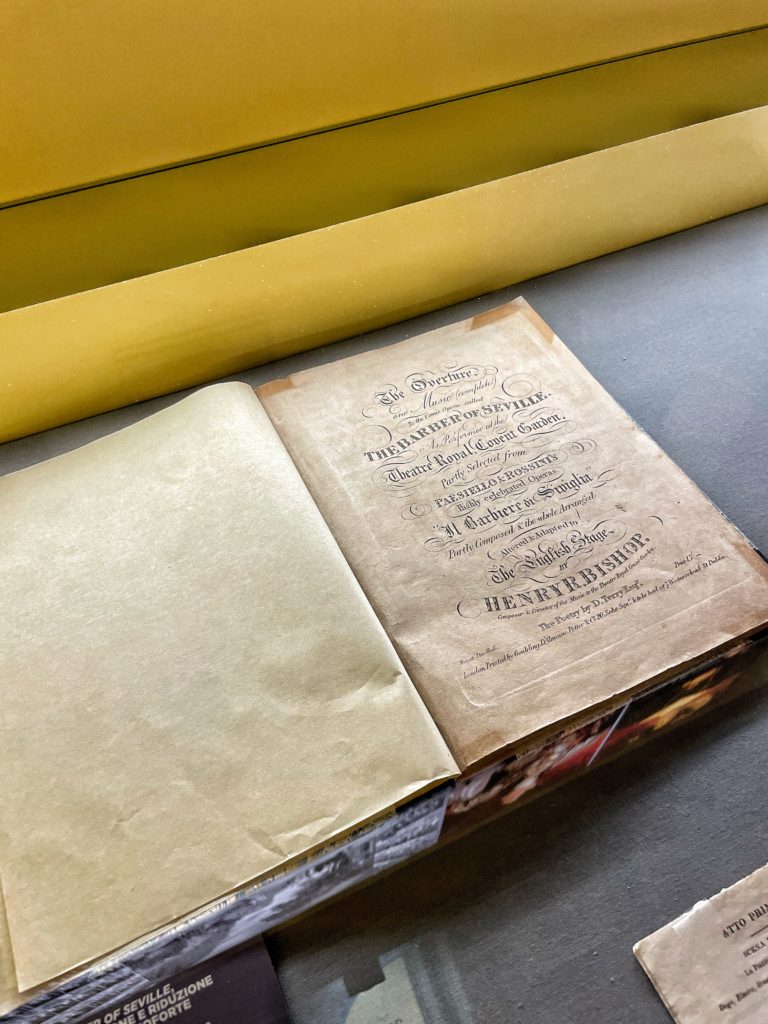 The Overture,
and Music (complete)
To the Comic Opera called
THE BARBER OF SEVILLE.
As Performed at the
Theatre Royal Covent Garden.
Partly Selected from
PAESIELLO & ROSSINI'S
highly celebrated Operas
"Il Barbiere di Siviglia"
Partly Composed & the whole Arranged
Altered & Adapted to
The English Stage,
BY
HENRY R. BISHOP.
Composer & Director of the Music to the Theatre Royal Covent Garden.
The Poetry by D. Terry Esqr.
London, Printed by Goulding D'Almaine Potter & Co. 20, Soho Sqre. & to be had at 7 Westmorland St. Dublin.
ER OF SEVILLE,
NE E RIDUZIONE
NOFORTE
ATTO PRIN
SCENA
La Piazza